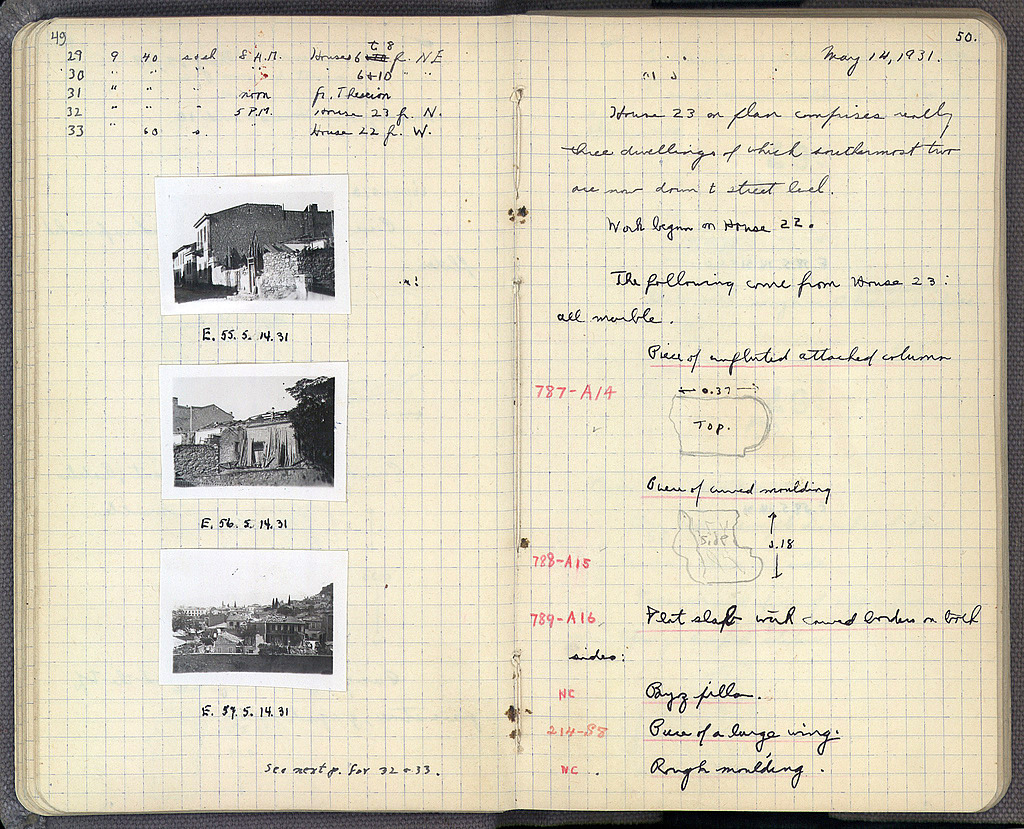 49
29 9 40 8 A.M. Houses 6 t 8 f. NE
30 " " " " 6 & 10 " "
31 " " " noon fr. Theseion
32 " " " 5 P.M. House 23 f. N.
33 " 60 s. " House 22 f. W.
E. 55. 5. 14. 31
E. 56. 5. 14. 31
E. 57. 5. 14. 31
See next p. for 32 & 33.
50.
May 14, 1931.
House 23 on plan comprises really
three dwellings of which southernmost two
are now down t street level.
Work begun on House 22.
The following come from House 23:
all marble.
Piece of unfluted attached column
787-A14
0.37
Top.
Piece of curved moulding
Side
.18
788-A15
789-A16 Flat slab with carved borders on both
sides:
NC Byz pillar.
214-S8 Piece of a large wing.
NC. Rough moulding.